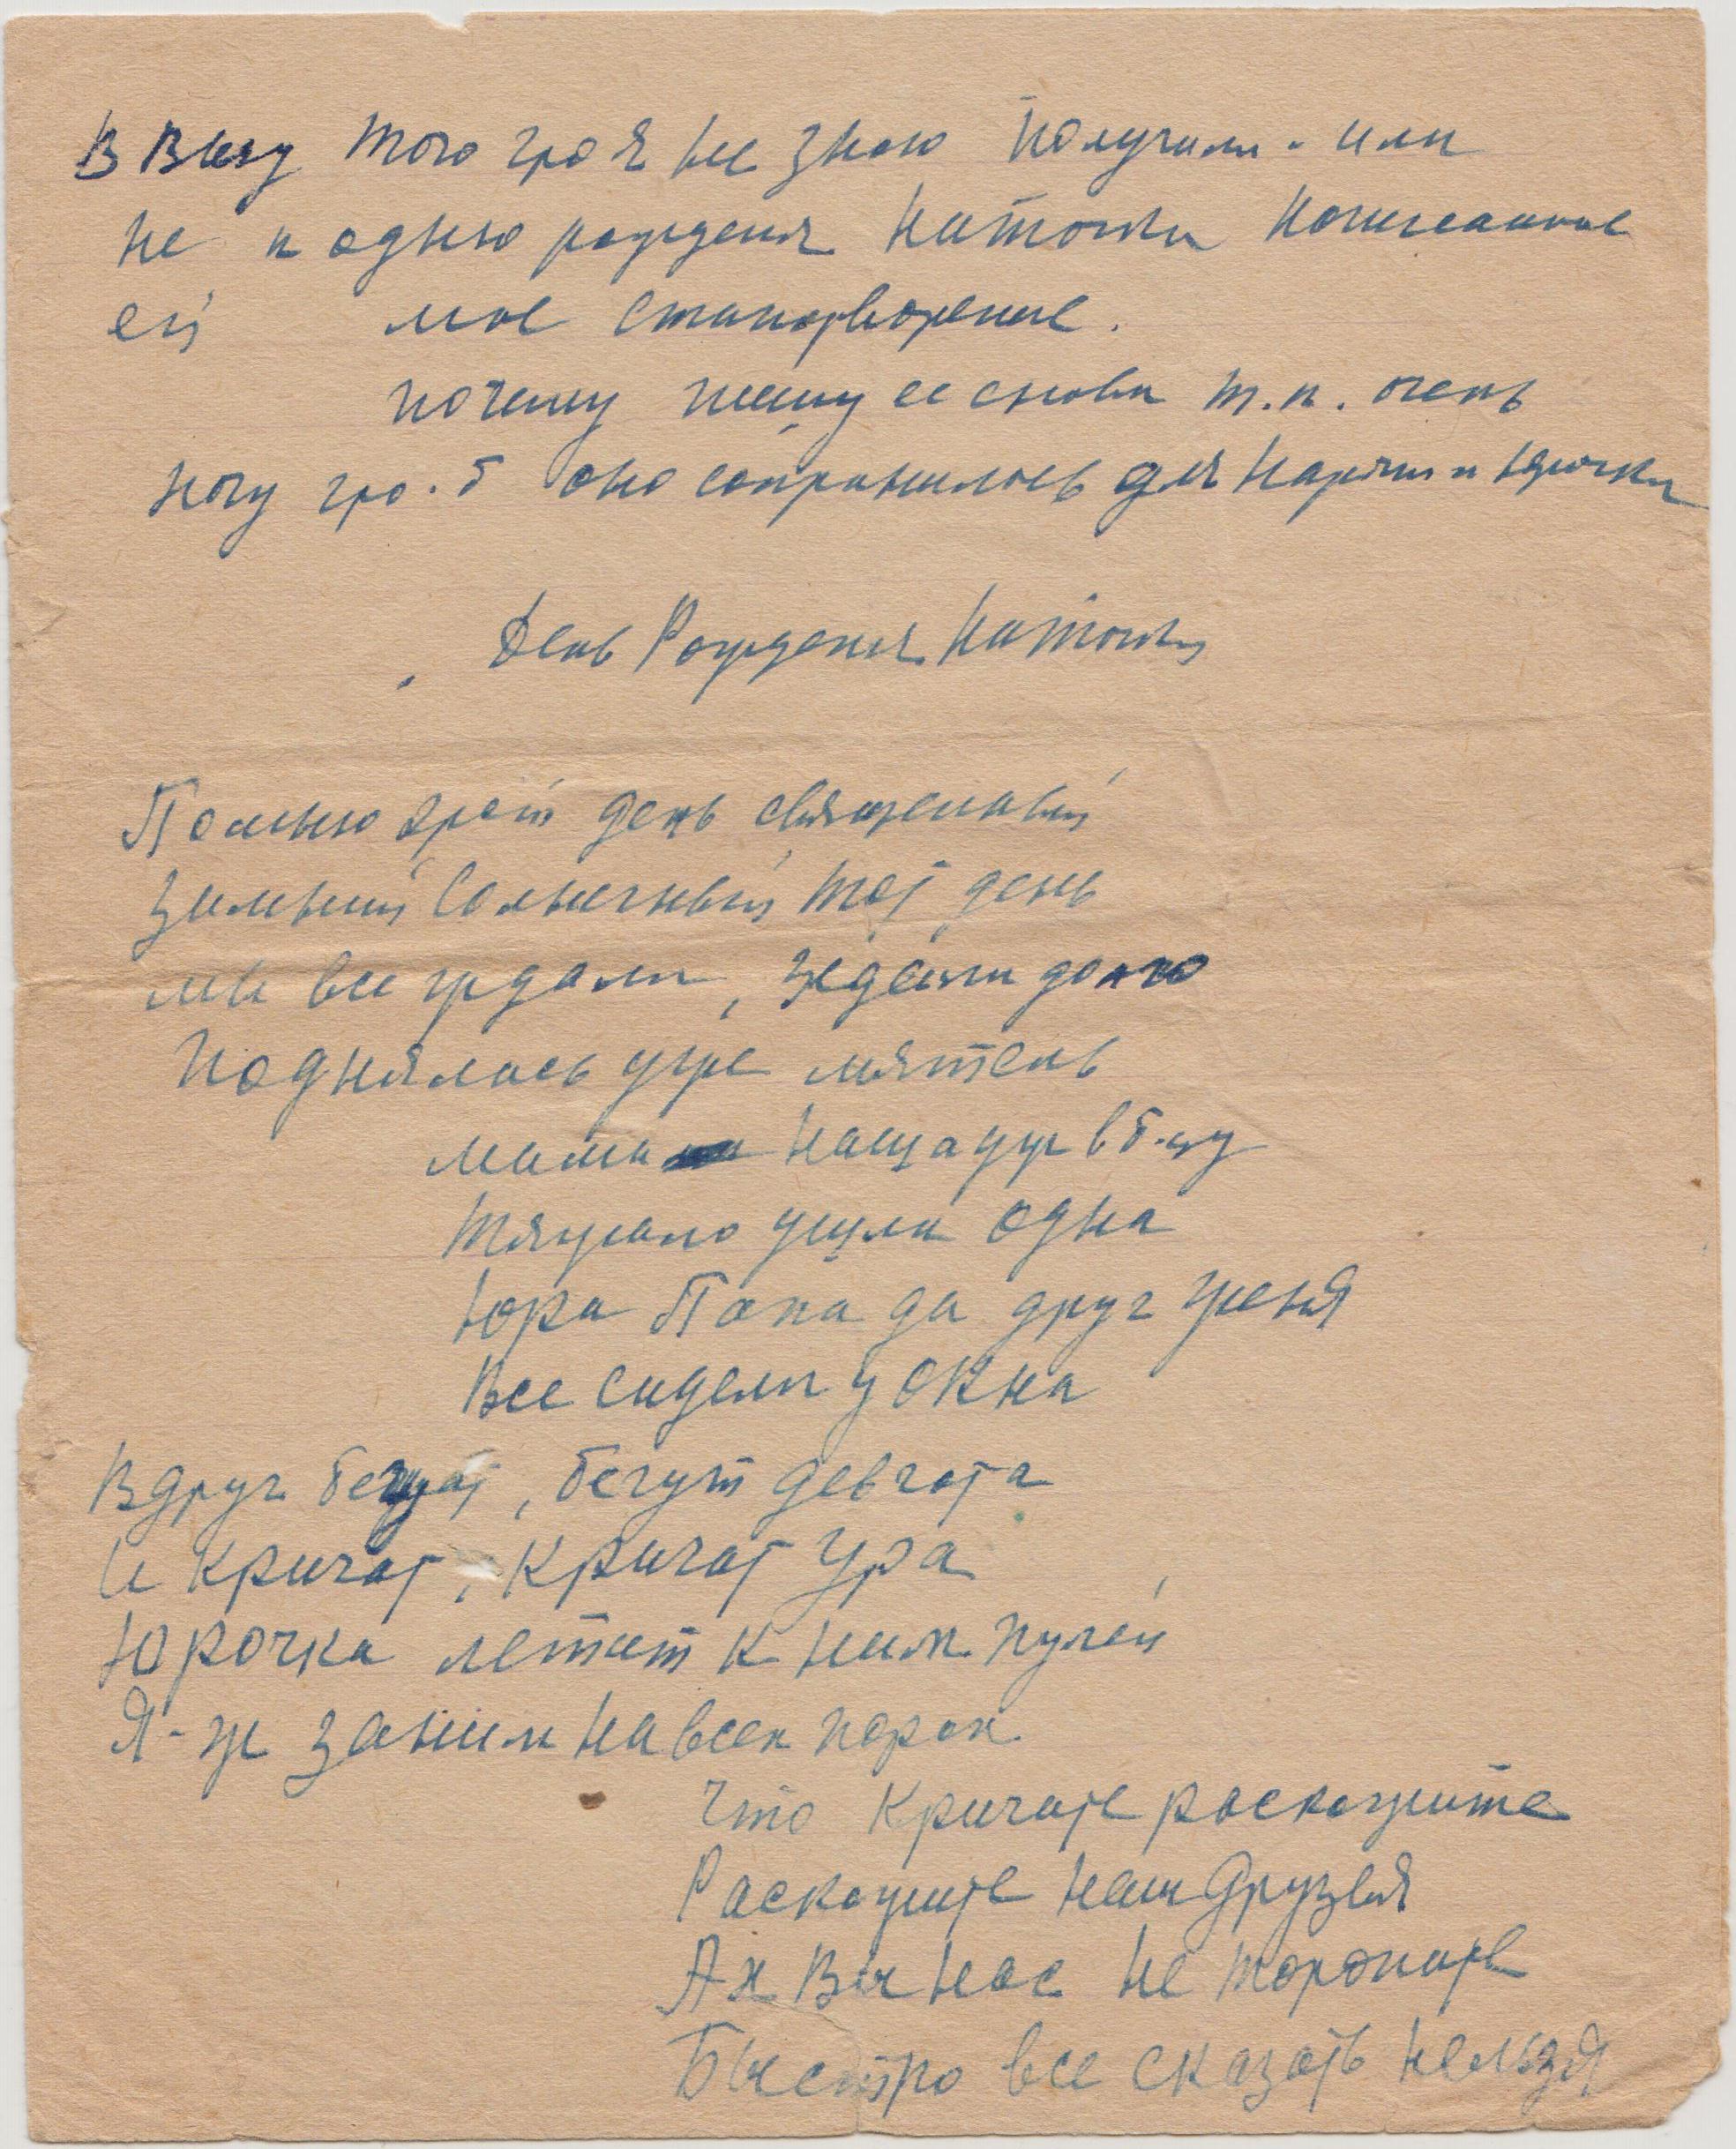 В виду того что я не знаю получили - или
не к о дню рождения Наташи написанное
ей мое стихотворение.
почему пишу ее снова т.к. очень
хочу что-б оно сохранилось для Наташи и Юрочки
День Рождения Наташи
Помню этот день священный
Зимний солнечный тот день
мы все ждали, ждали долго
Поднялась уже мятель
мама наша уж в б-цу
тяжело ушла одна
Юра Папа да друг Женя
Все сидели у окна
Вдруг бежат, бегут девчата
И кричат, кричат ура
Юрочка летит к ним пулей
Я-ж за ним на всех порах
Что кричате раскажите
Раскажите нам друзья
Ах Вы нас не торопите
Быстро все сказать нельзя